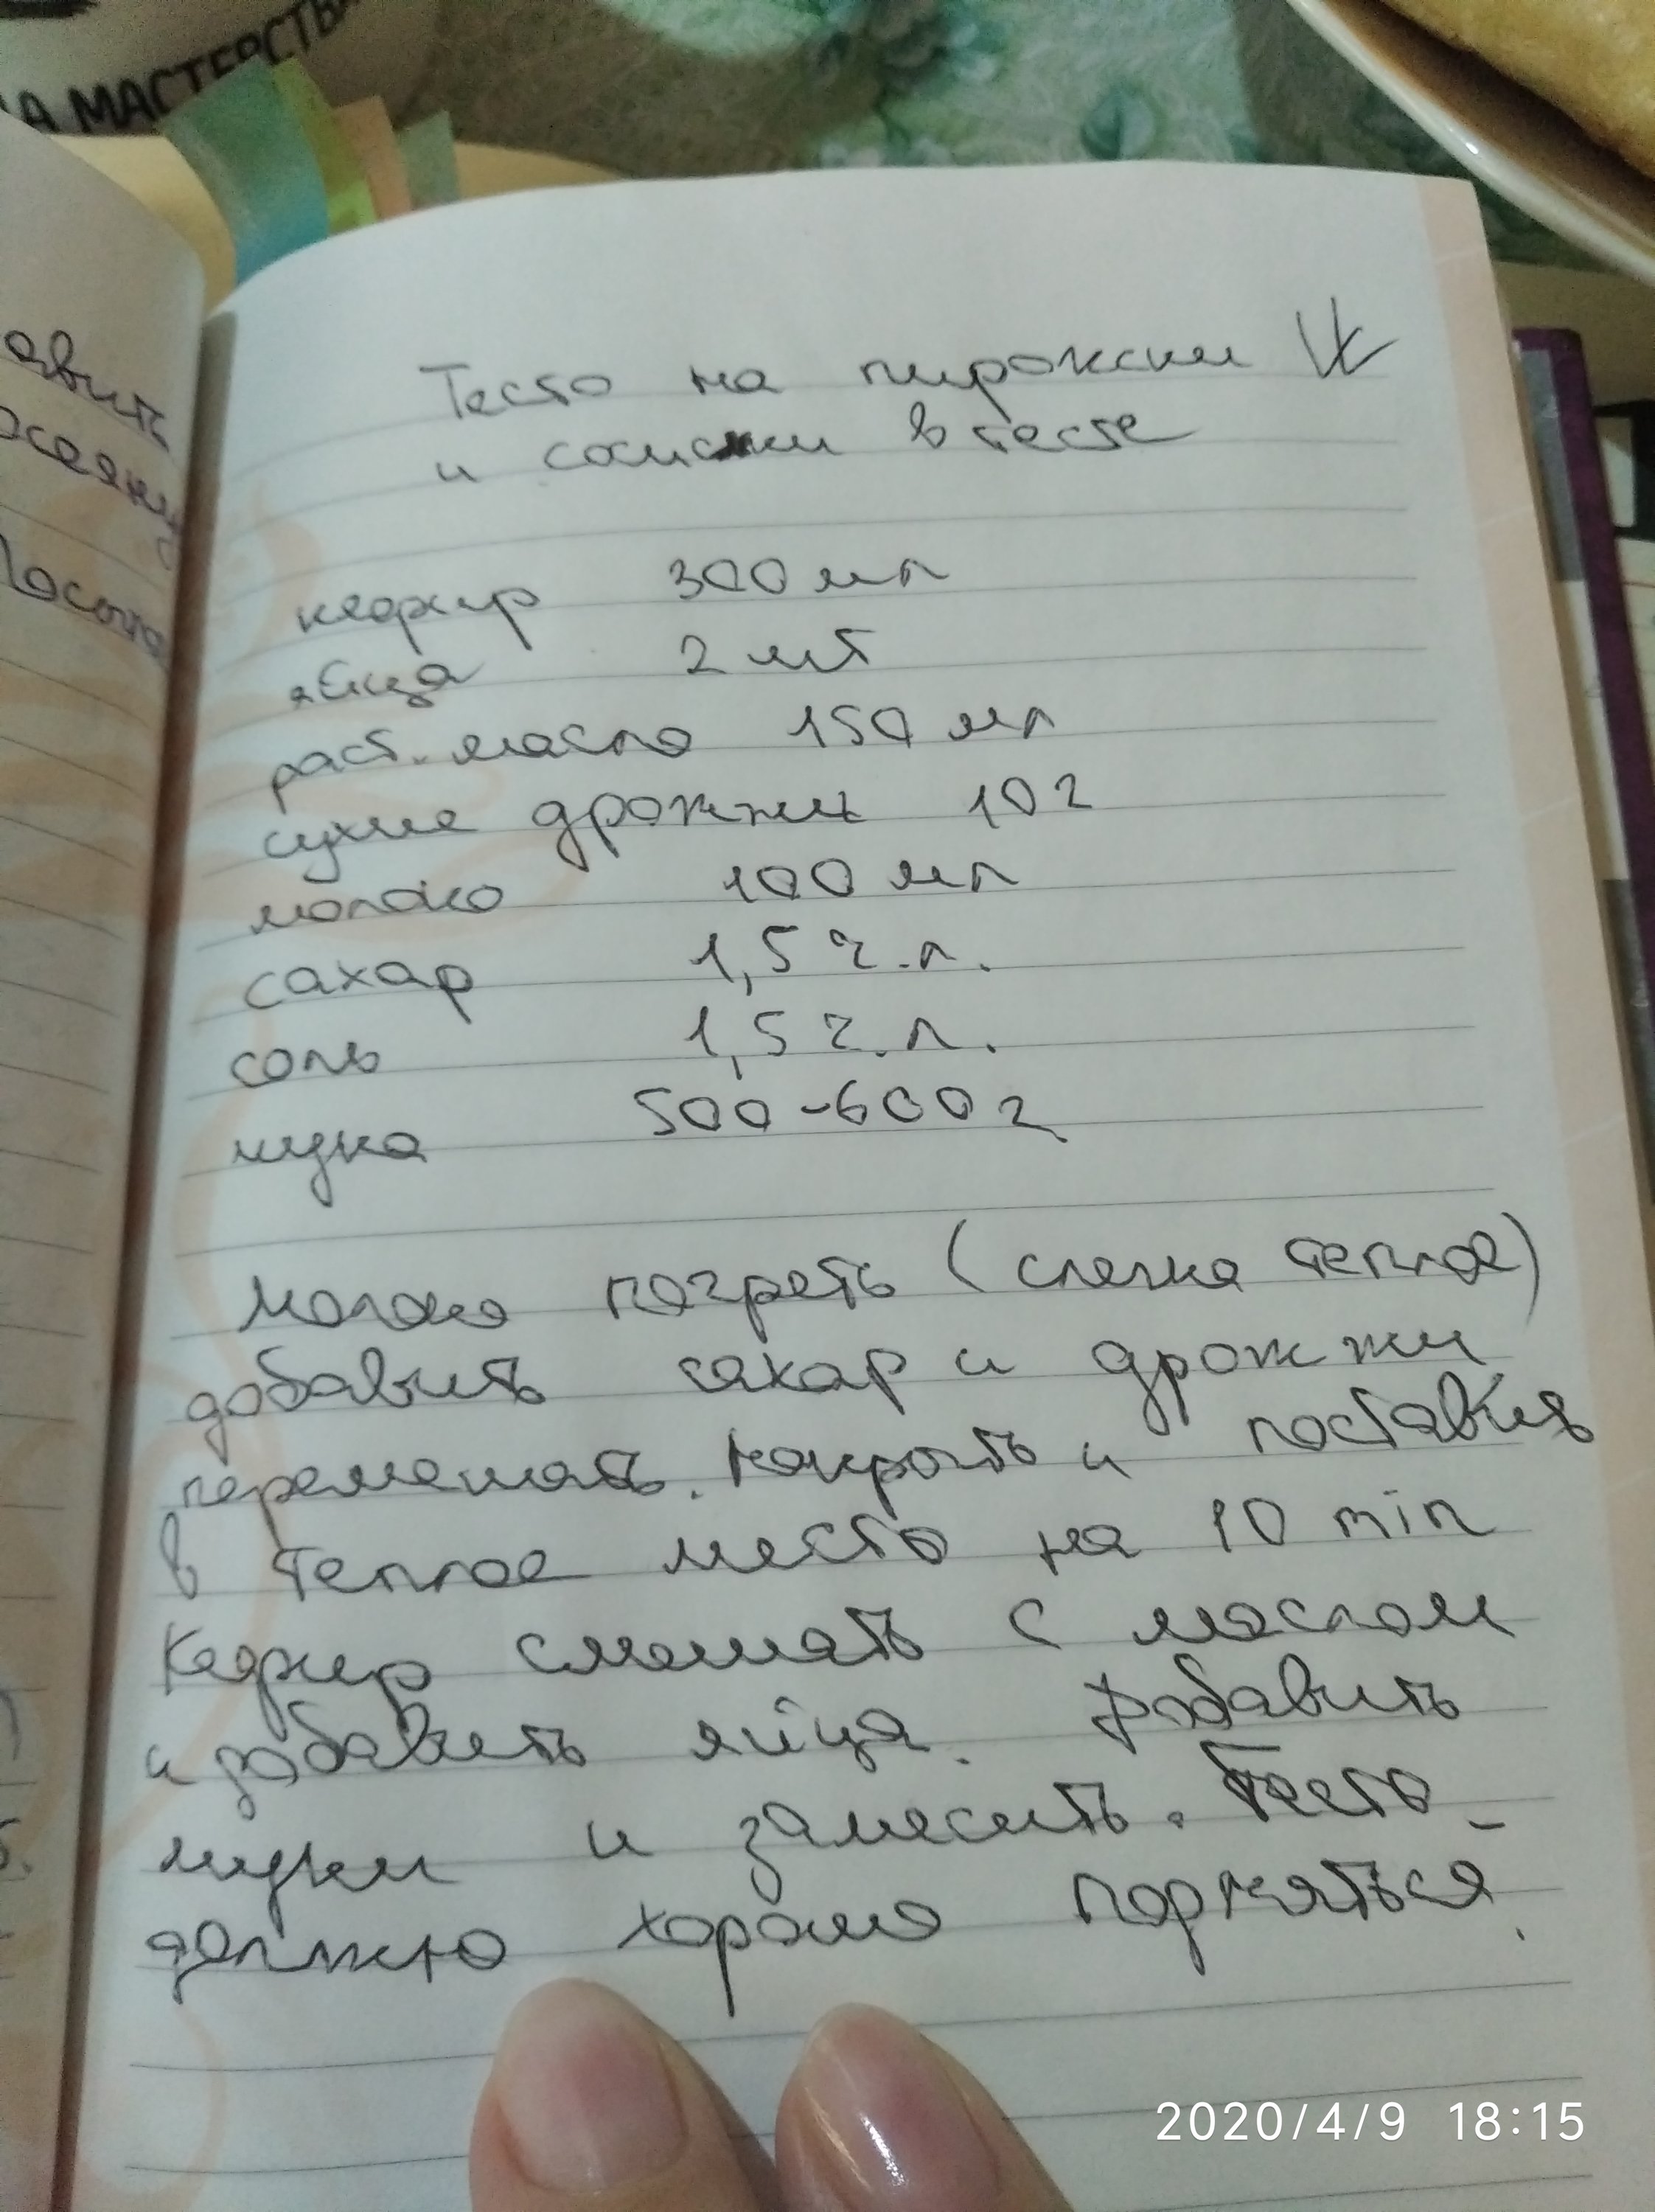 А МАСТЕРСТВ
авить
жсяну
Посыпа
Тесто на пирожки
и сосиски в тесте
кефир 300 мл
яйца 2 шт
раст. масло 150 мл
сухие дрожжи 10 г
молоко 100 мл
сахар 1,5 ч.л.
соль 1,5 ч.л.
мука 500-600 г
Молоко погреть (слегка теплое)
добавить сахар и дрожжи
перемешать. Накрыть и поставить
в теплое место на 10 min
Кефир смешать с маслом
и добавить яйца. Добавить
муки и замесить. Тесто -
должно хорошо подняться.
2020/4/9 18:15